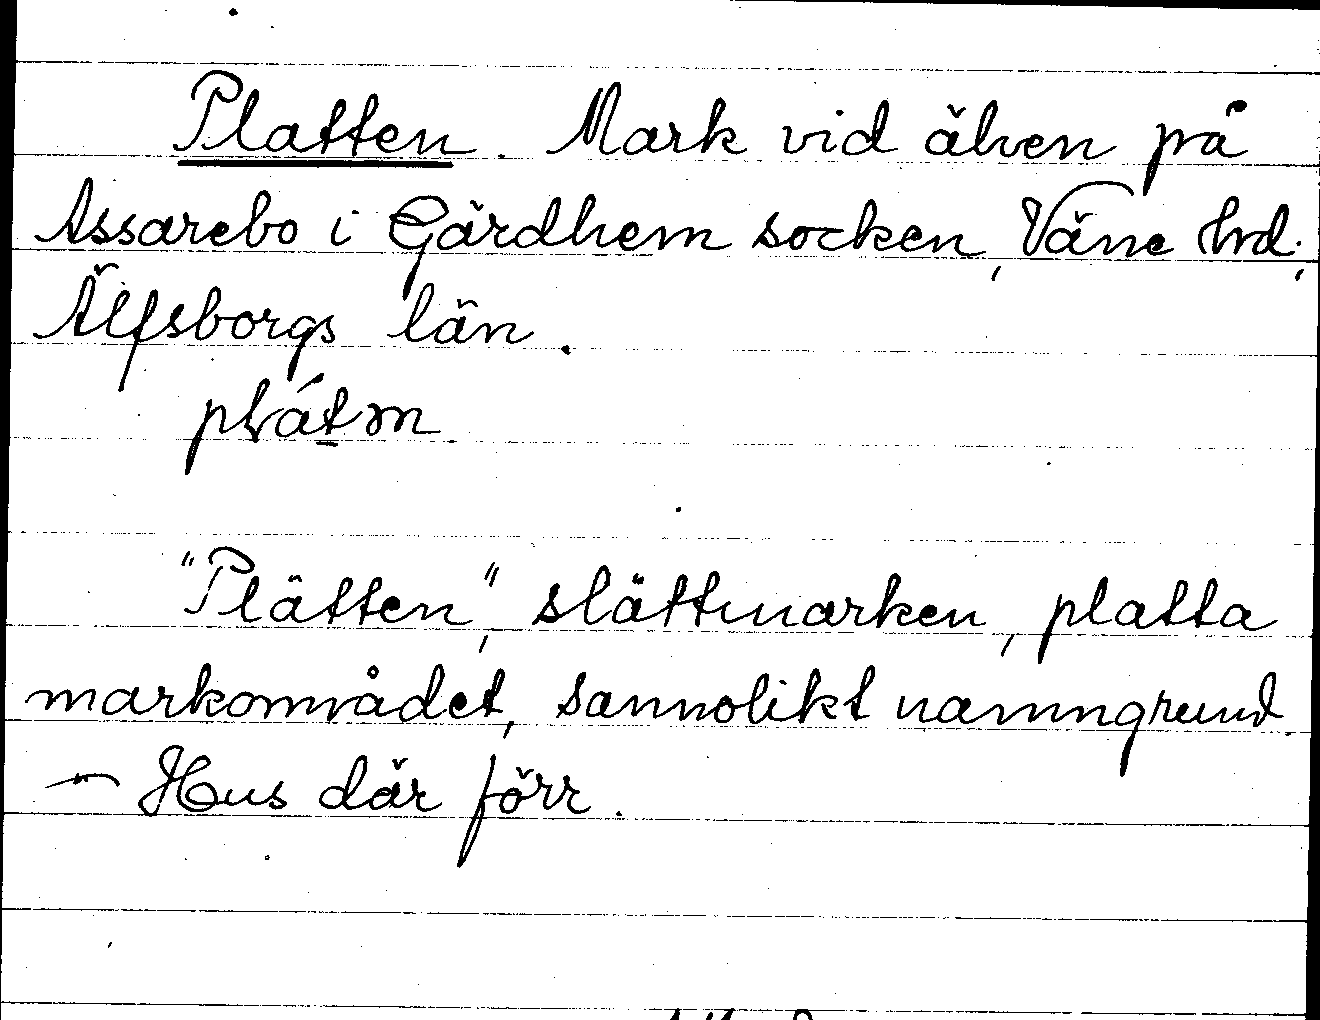 Platten. Mark vid älven på
Assarebo i Gärdhem socken, Väne hrd.,
Älfsborgs län.
"Plätten", slättmarken, platta
markområdet, sannolikt namngrund.
— Hus där förr.